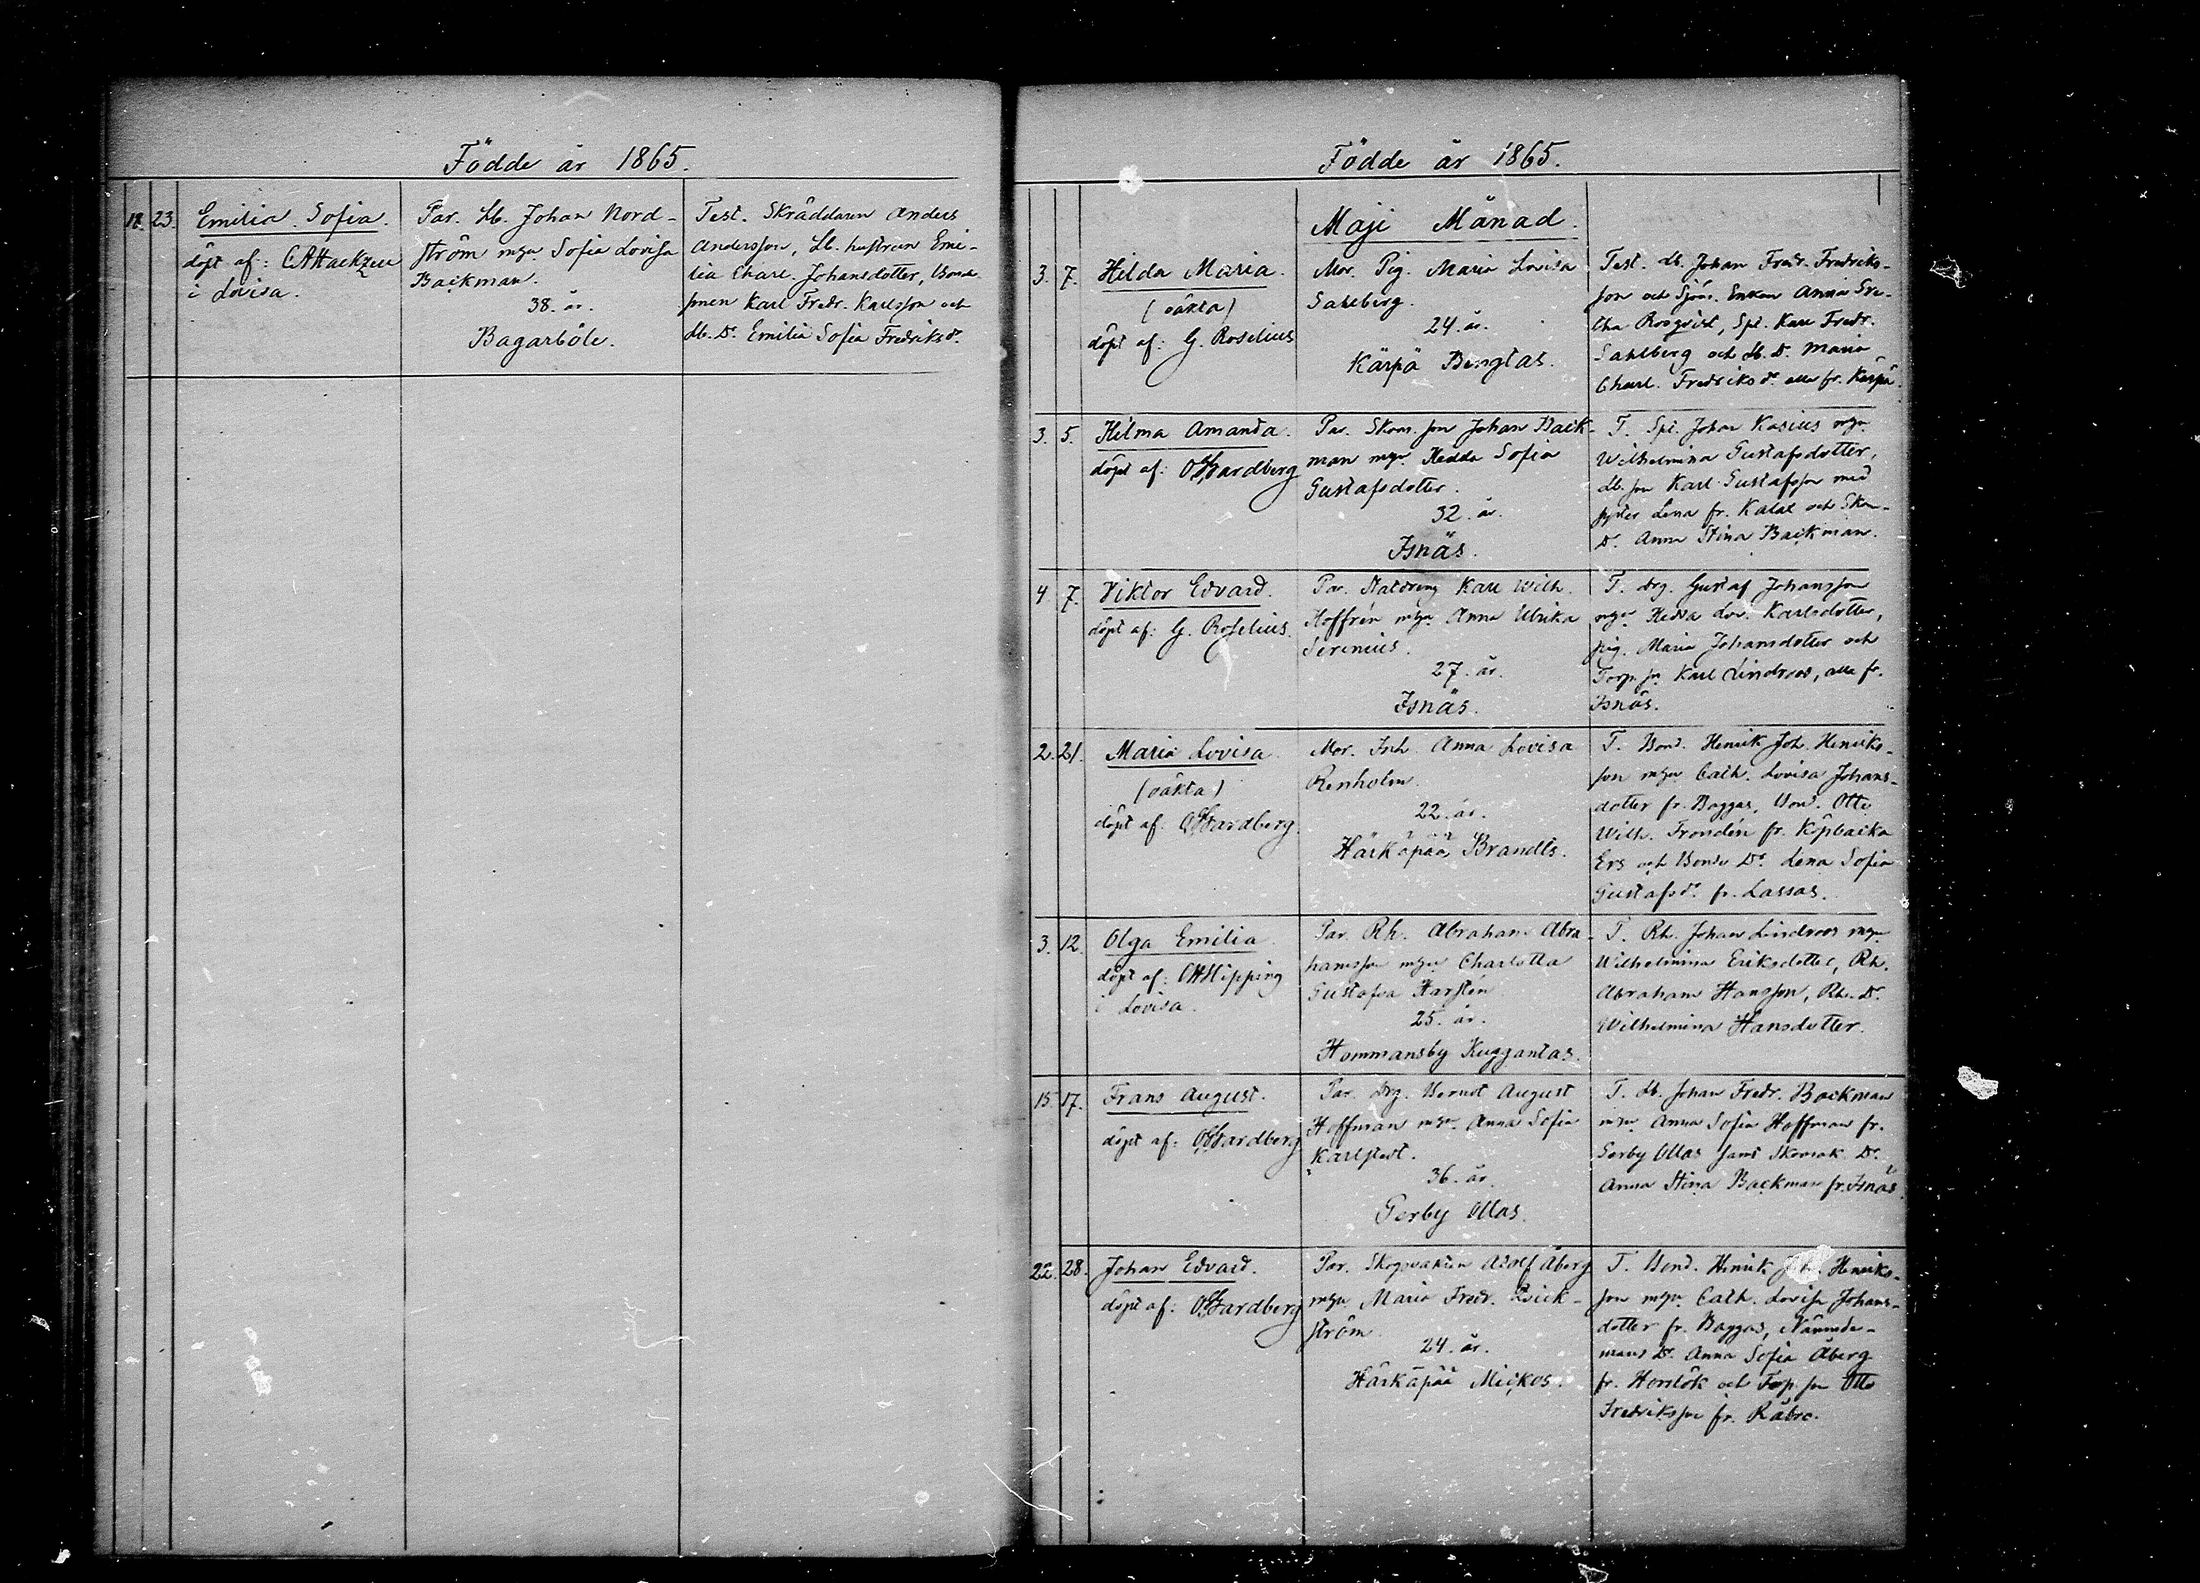 Födde år 1865.
12. 23. Emilia Sofia.
döpt af: CAHackzell
i Lovisa.
Par. Lb. Johan Nord-
ström m hu Sofia Lovisa
Backman.
38. år.
Bagarböle.
Test. Skräddaren Anders
Andersson, Lb. hustrun Emi-
lia Charl. Johansdotter, Bonde
sonen Karl Fredr. Karlsson och
Lb. Dr Emilia Sofia Fredriksdr.
Födde år 1865.
Maji Månad.
3. 7. Hilda Maria.
(oäkta)
döpt af: G. Roselius
Mor. Pig. Maria Lovisa
Sahlberg.
24. år.
Kärpä Bengtas.
Test. Lb. Johan Fredr. Fredriks-
son och Sjöm. Enkan Anna Gre-
tha Rosqvist, Spl. Karl Fredr.
Sahlberg och Lb. D. Maria
Charl. Fredriksdr alla fr. Kärpä.
3. 5. Hilma Amanda.
döpt af: Gardberg
Par. Skom. son Johan Back-
man m hu Hedda Sofia
Gustafsdotter.
32. år.
Isnäs.
T. Spl. Johan Kasius m hu
Wilhelmina Gustafsdotter,
Lb. son Karl Gustafsson med
syster Lena fr. Kalax och Skom.
Dr Anna Stina Backman.
4 7. Viktor Edvard.
döpt af: G. Roselius.
Par. Statdreng Karl Wilh.
Hoffrén m hu Anna Ulrika
Serenius.
27. år.
Isnäs.
T. drg. Gustaf Johansson
m hu Hedda Lov. Karlsdotter,
pig. Maria Johansdotter och
Torp. sn Karl Lindroos, alla fr.
Isnäs.
2. 21. Maria Lovisa
(oäkta)
döpt af: Gardberg.
Mor. Inh. Anna Lovisa
Renholm.
22. år.
Härkäpää Brandts.
T. Bond. Henrik Joh. Henriks-
son m hu Cath. Lovisa Johans-
dotter fr. Baggas, Bond. Otto
Wilh. Frondén fr. Köpbacka
Ers och Bonde Dr Lena Sofia
Gustafsdr fr. Lassas.
3. 12. Olga Emilia
döpt af: Hipping
i Lovisa.
Par. Rh. Abraham Abra-
hamsson m hu Charlotta
Gustafva Karstén
25. år.
Hommansby Kuggantas.
T. Rh. Johan Lindroos m hu
Wilhelmina Eriksdotter, Rh.
Abraham Hansson, Rh. Dr
Wilhelmina Hansdotter.
15. 17. Frans August.
döpt af: Gardberg
Par. Drg. Berndt August
Hoffman m hu Anna Sofia
Karlstedt.
36. år.
Gerby Ollas.
T. Lb. Johan Fredr. Backman
m hu Anna Sofia Hoffman fr.
Gerby Ollas samt Skomak. Dr
Anna Stina Backman fr. Isnäs.
22. 28. Johan Edvard.
döpt af: Gardberg
Par. Skogsvakten Adolf Åberg
m hu Maria Fredr. Qvick-
ström
24. år.
Härkäpää Mickos.
T. Bond. Henrik Joh. Henriks-
son m hu Cath. Lovisa Johans-
dotter fr. Baggas, Nämnde-
mans Dr Anna Sofia Åberg
fr. Horslök och Torp. son Otto
Fredriksson fr. Råbro.